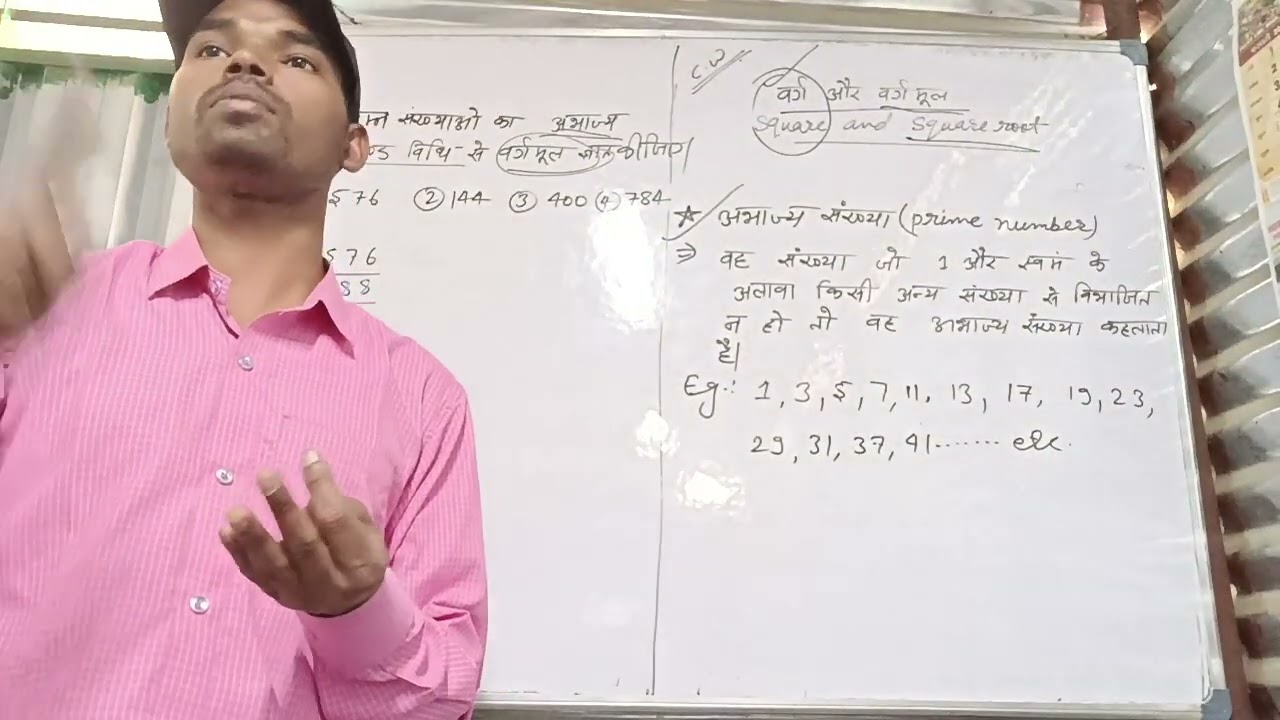 संख्याओ का अभाज्य
विधि से वर्गमूल ज्ञात कीजिए|
576 ② 144 ③ 400 ④ 784
576
88
C.W
वर्ग और वर्ग मूल
Square and Square root
★ अभाज्य संख्या (prime number)
⇒ वह संख्या जो 1 और स्वमं के
अलावा किसी अन्य संख्या से विभाजित
न हो तो वह अभाज्य संख्या कहलाता
है|
Eg.: 1, 3, 5, 7, 11, 13, 17, 19, 23,
29, 31, 37, 41....... etc.